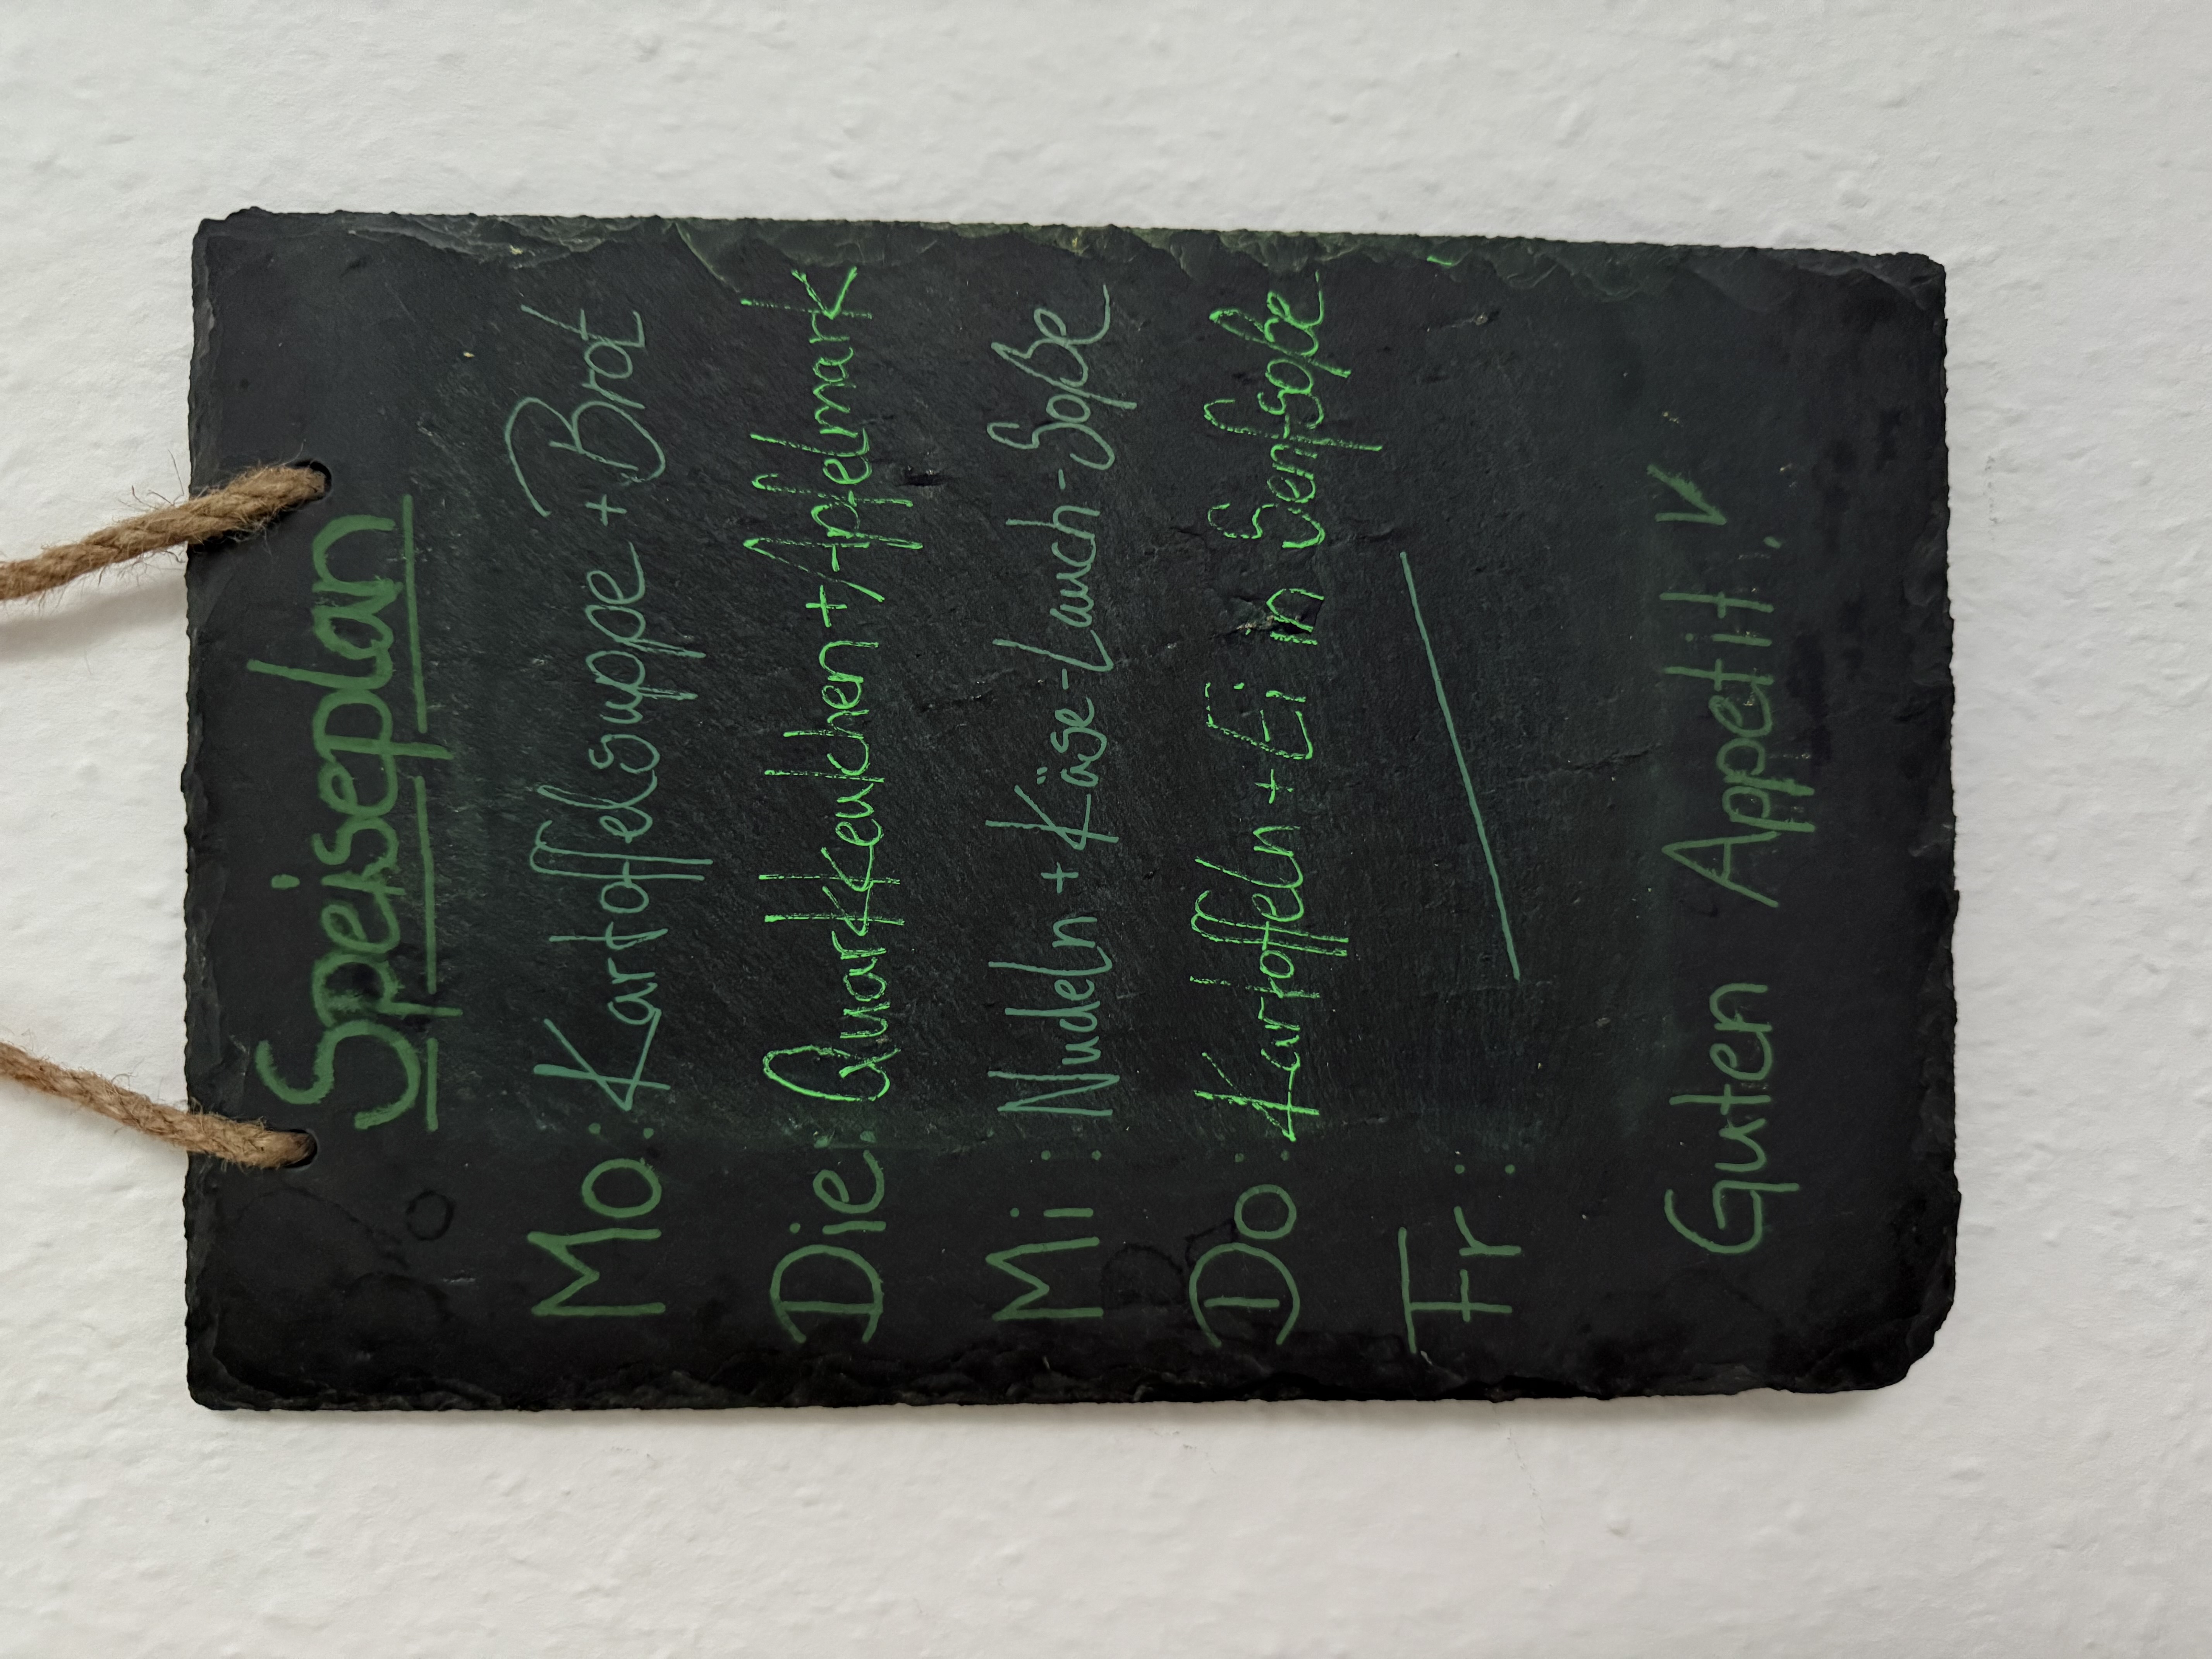 Speiseplan
Mo: Kartoffelsuppe + Brot
Die: Quarkkeulchen + Apfelmark
Mi: Nudeln + Käse-Lauch-Soße
Do: Kartoffeln + Ei in Senfsoße
Fr:
Guten Appetit!